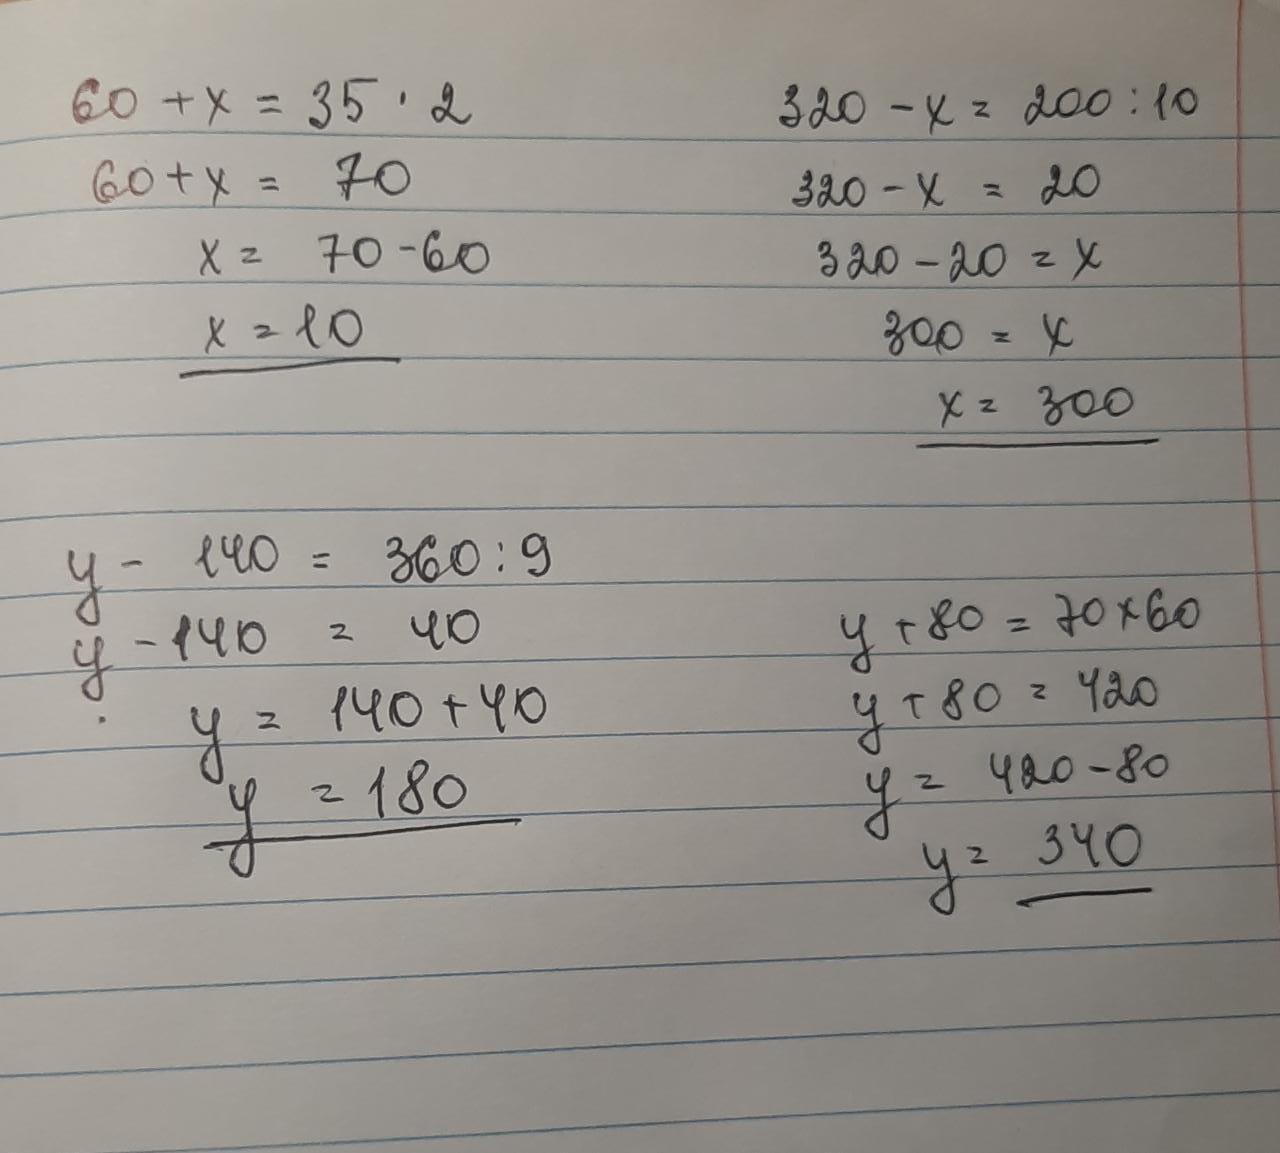 60 + x = 35 · 2
60 + x = 70
x = 70 - 60
x = 10
320 - x = 200 : 10
320 - x = 20
320 - 20 = x
300 = x
x = 300
y - 140 = 360 : 9
y - 140 = 40
y = 140 + 40
y = 180
y + 80 = 70 x 60
y + 80 = 420
y = 420 - 80
y = 340